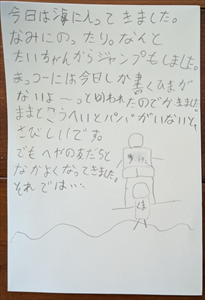 今日は海に入ってきました。
なみにのったり。なんと
たいちゃんからジャンプもしました。
まっコーには今日しか書くひまが
ないよ〜っと句われたのでかきました
ままとこうへいとパパがいないと、
さびしいです。
でもヘヤの友だちと
なかよくなってきました。
それでは…